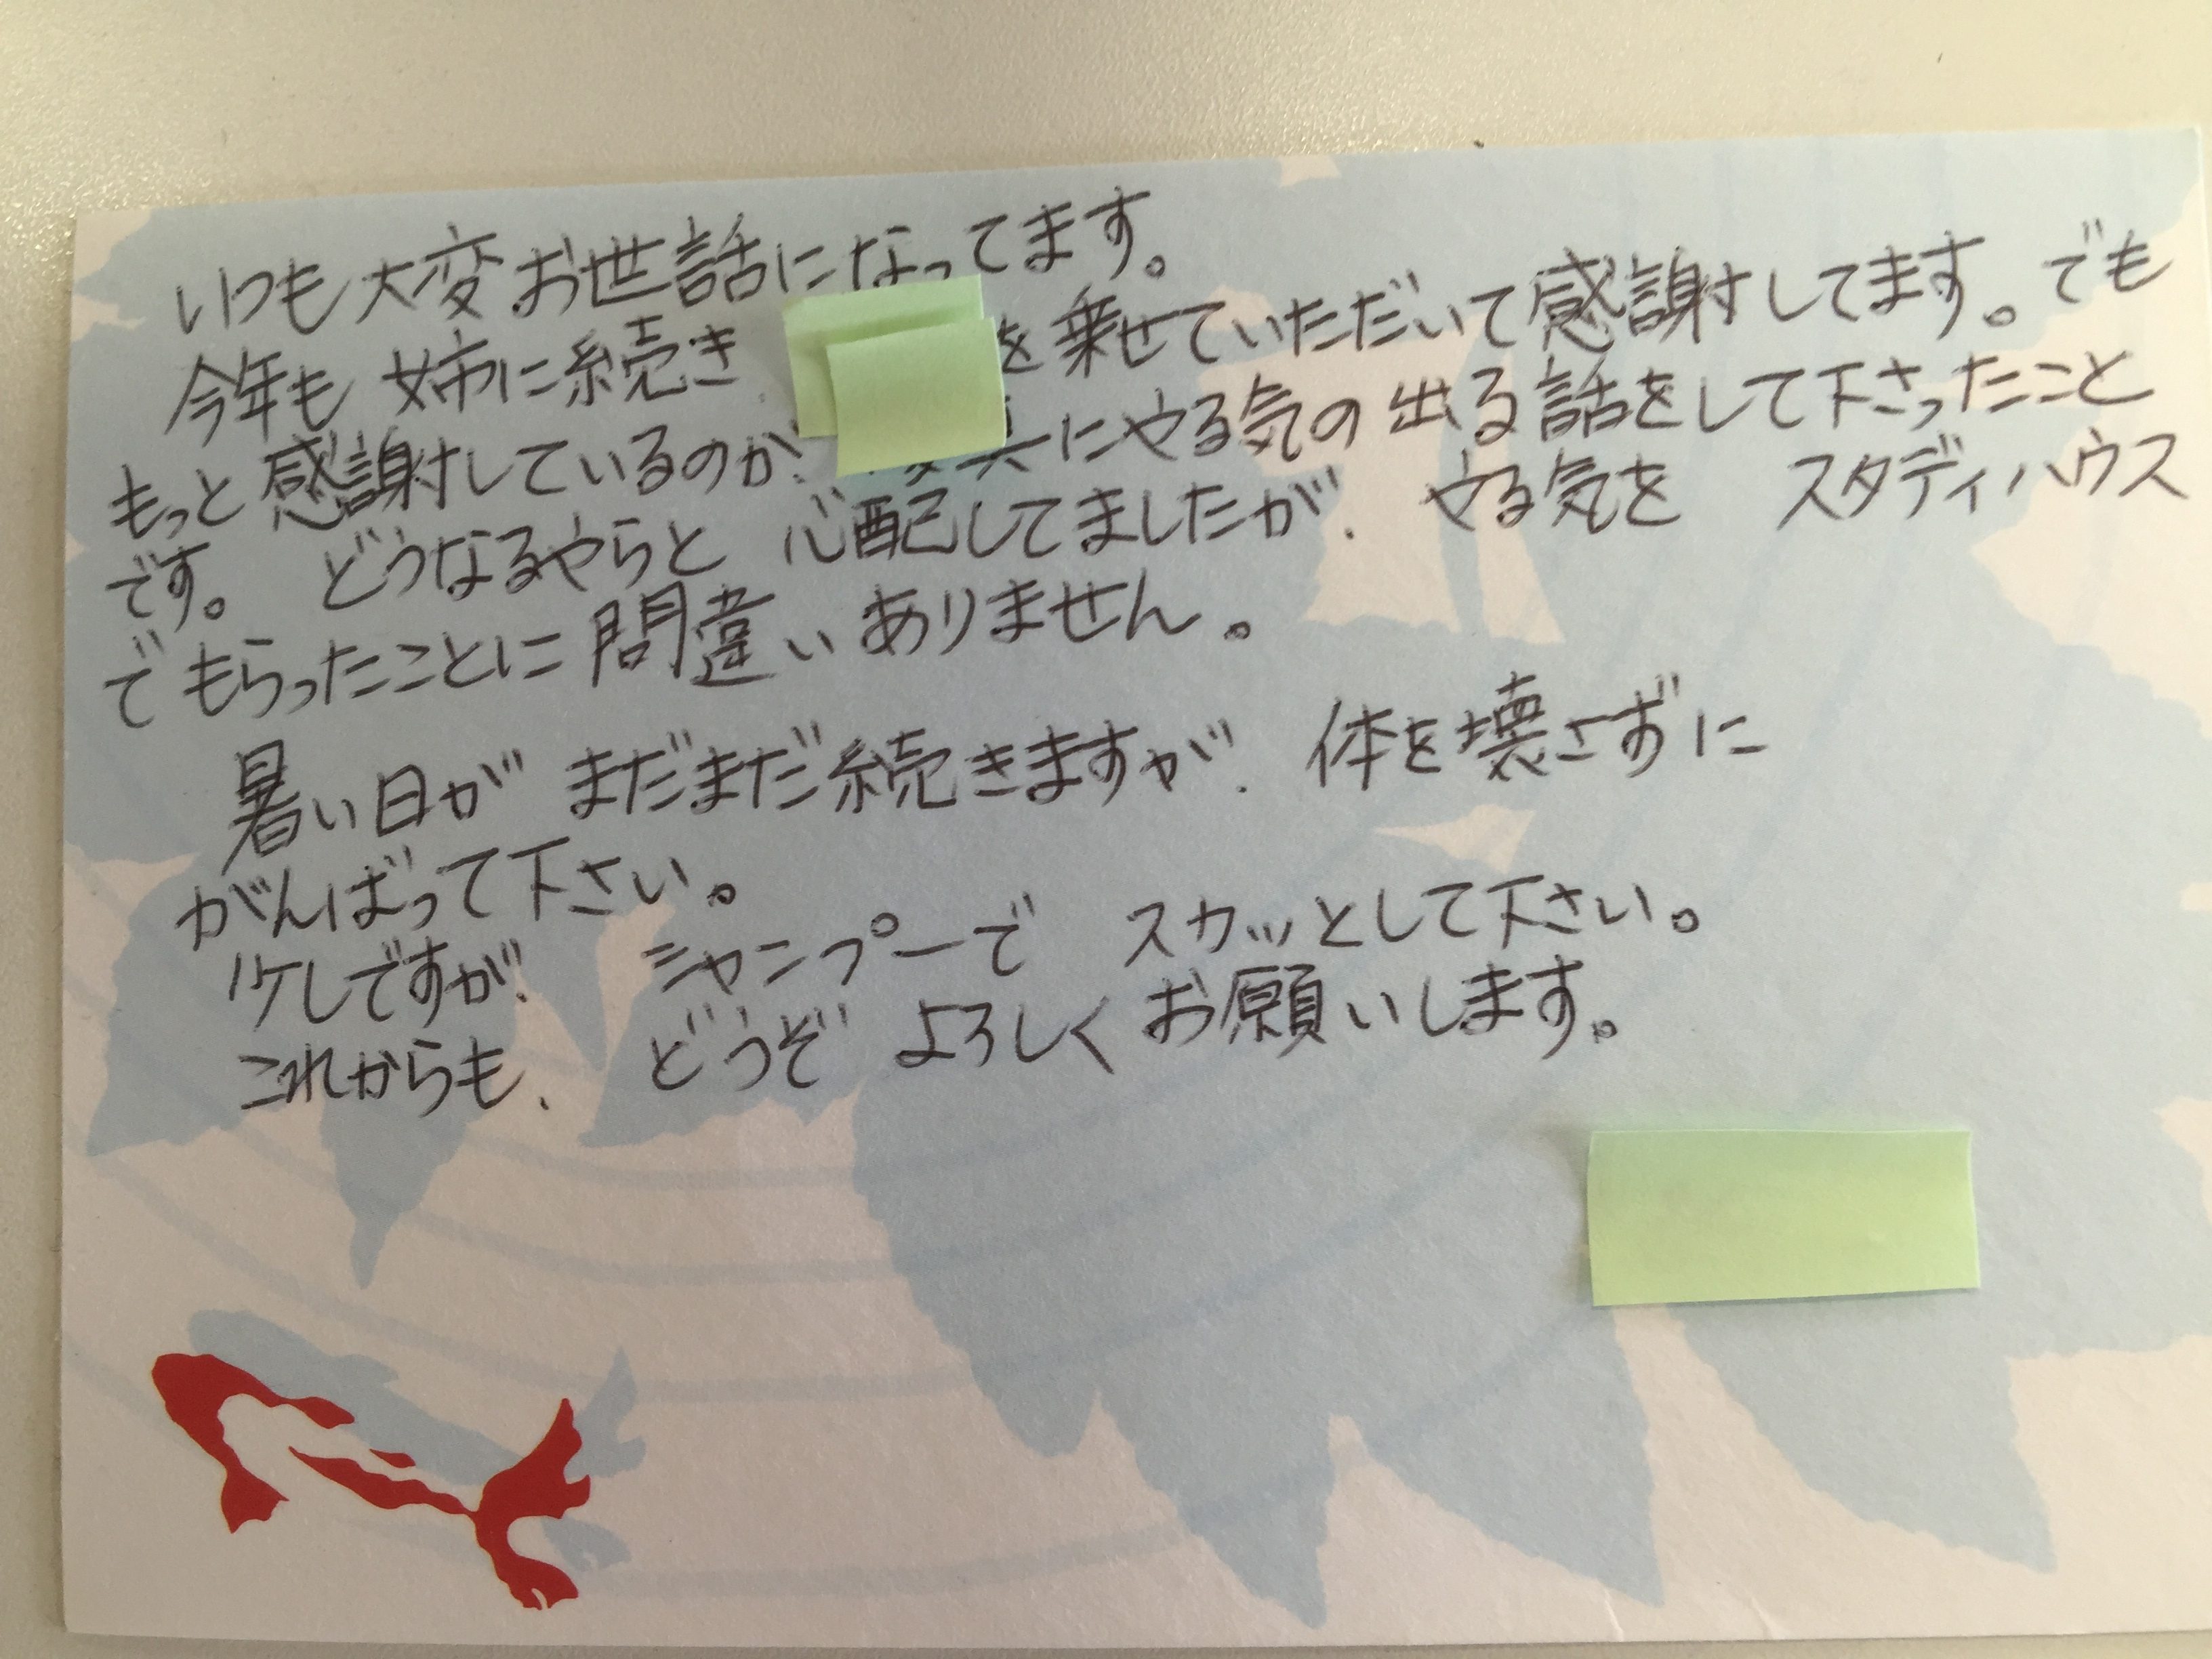 いつも大変お世話になってます。
今年も 姉に続き を乗せていただいて感謝してます。でも
もっと感謝しているのが、 にやる気の出る話をして下さったこと
です。 どうなるやらと 心配してましたが、 やる気を スタディハウス
でもらったことに間違いありません。
暑い日が まだまだ続きますが、 体を壊さずに
がんばって下さい。
少しですが、 シャンプーで スカッとして下さい。
これからも、 どうぞ よろしくお願いします。